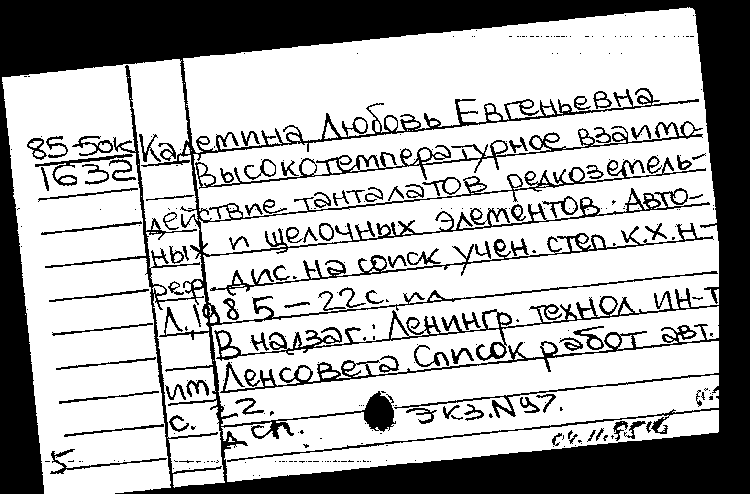 85-50к Кадемина, Любовь Евгеньевна
1632 Высокотемпературное взаимо-
действие танталатов редкоземель-
ных и щелочных элементов: Авто-
реф. дис. на соиск. учен. степ. к.х.н-
Л., 1985. - 22с. ил
В надзаг.: Ленингр. технол. ин-т
им. Ленсовета. Список работ авт.
с. 22.
дсп. Экз.N97.
5